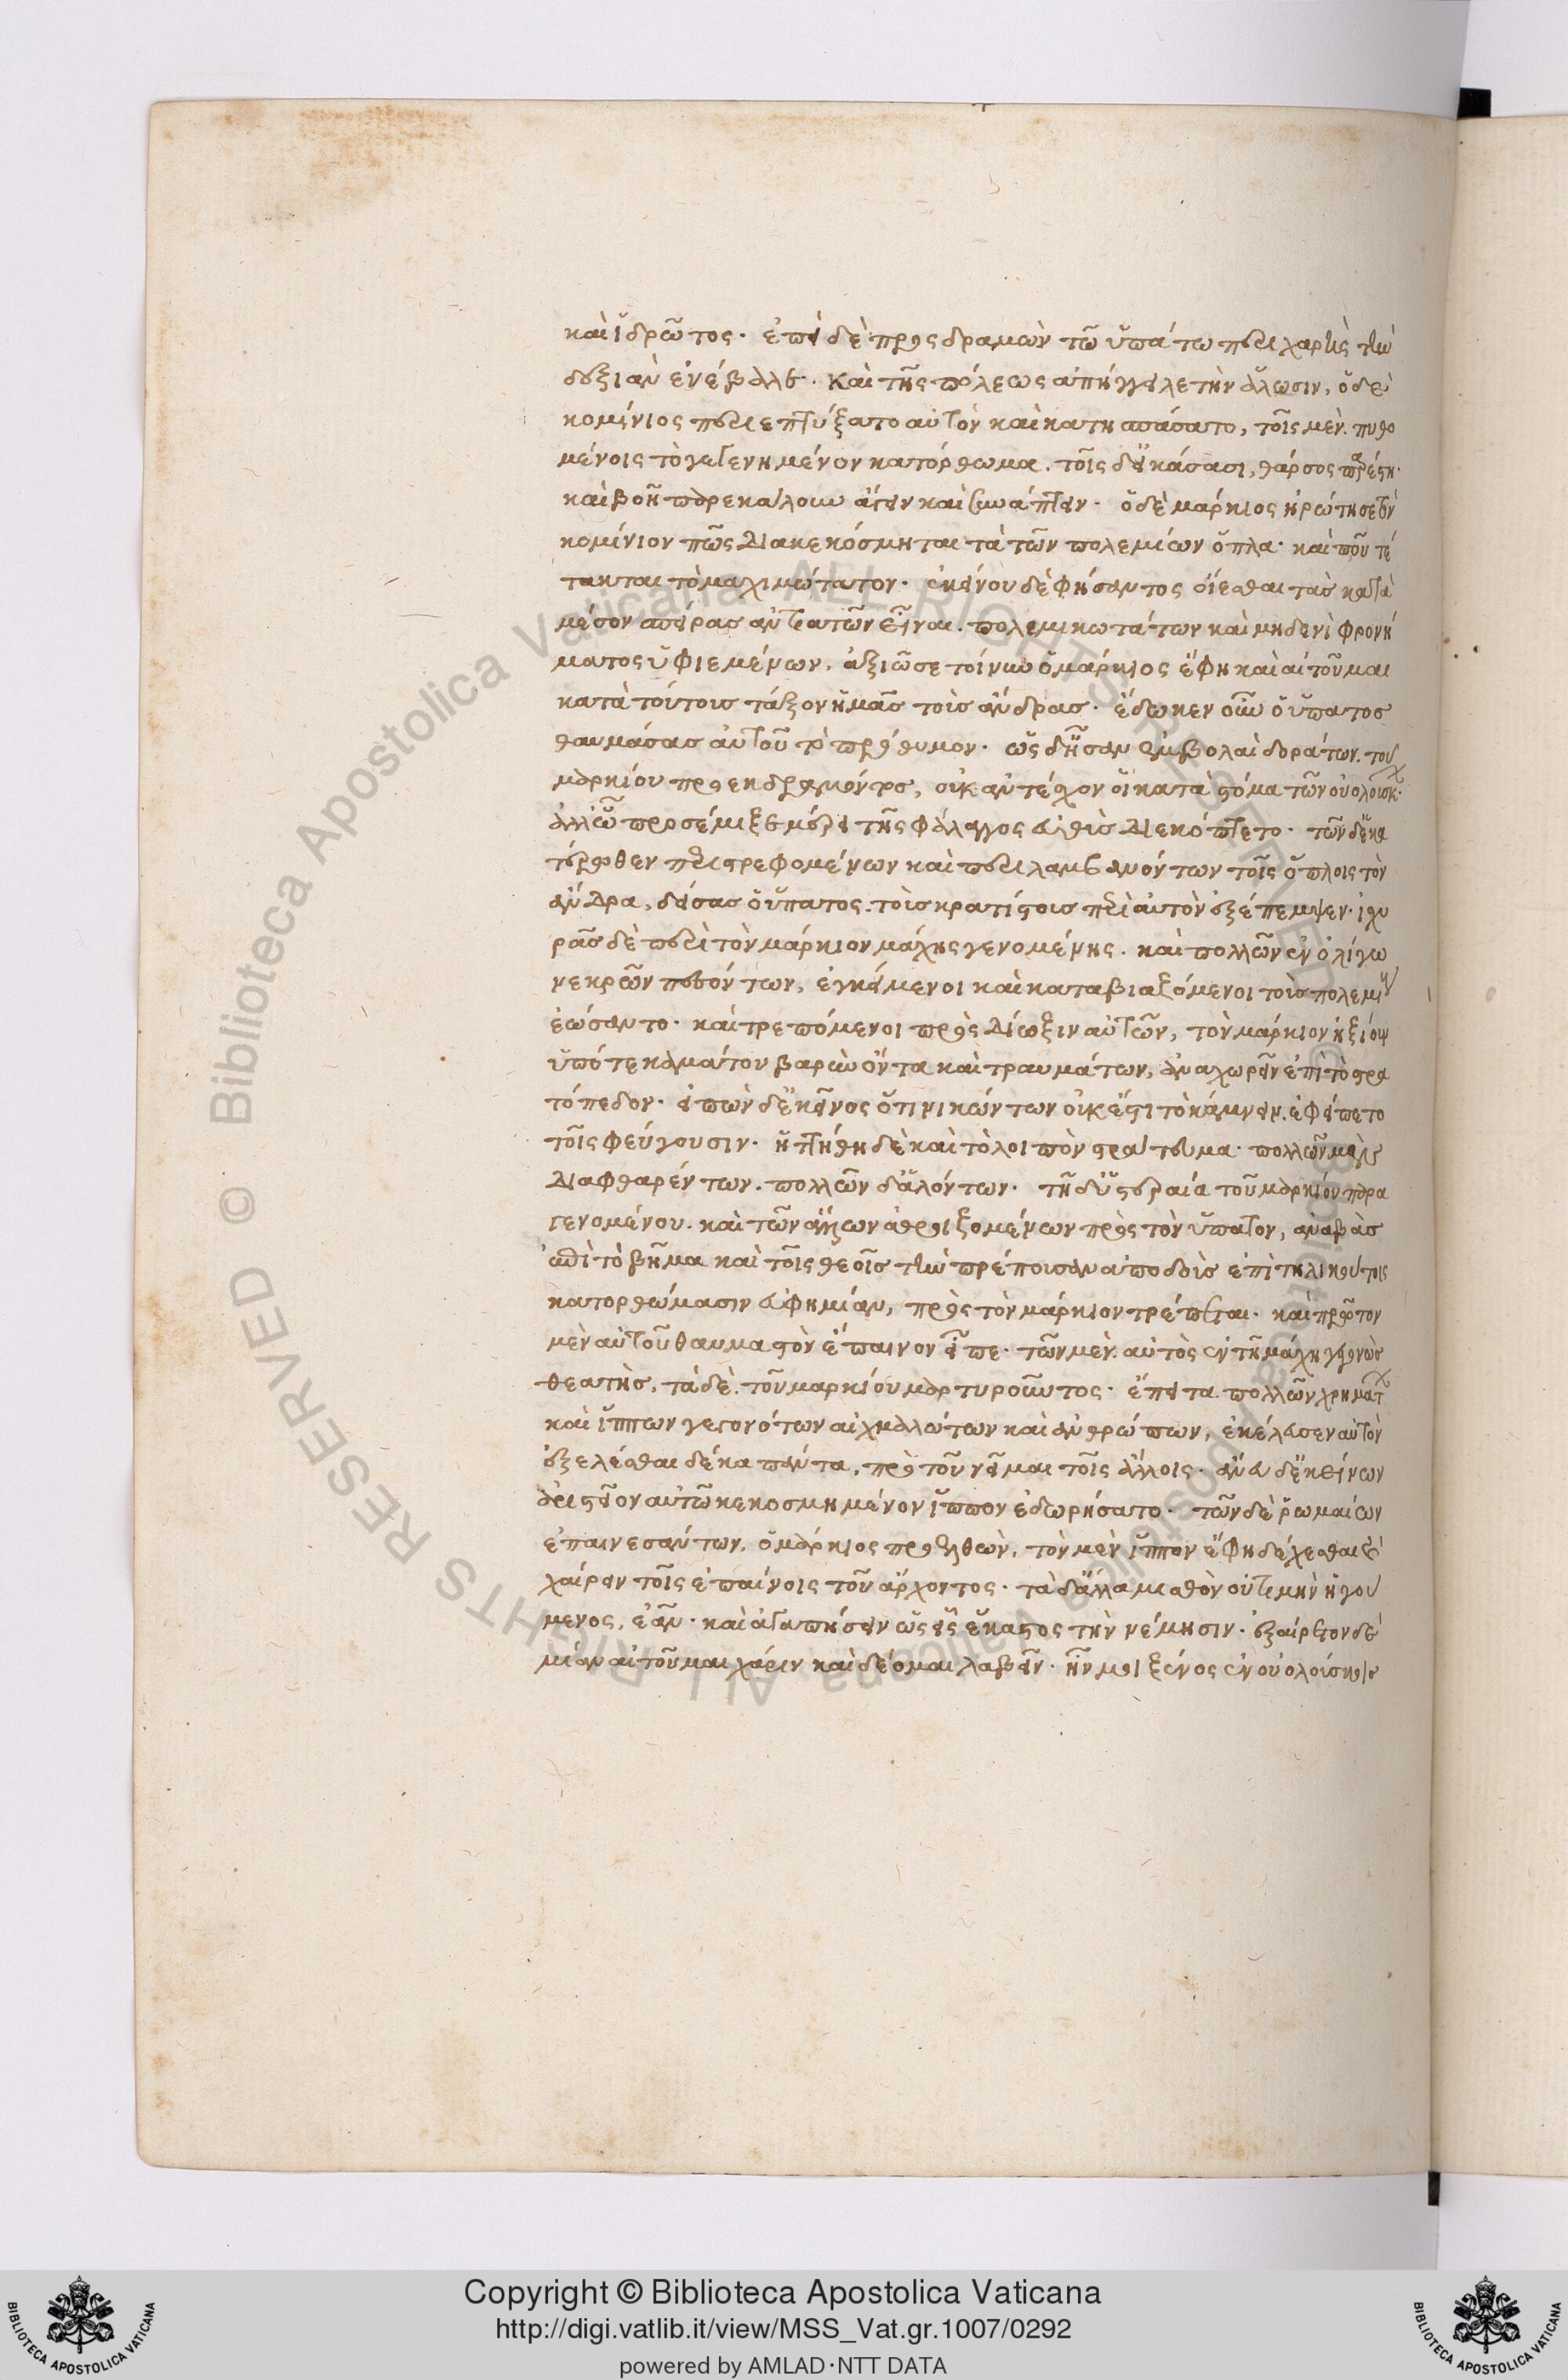 καὶ ἱδρῶτος. ἐπεὶ δὲ προσδραμὼν τῶ ὑπάτω περιχαρὴς τὴν
δεξιὰν ἐνέβαλε. καὶ τῆς πόλεως ἀπήγγειλε τὴν ἅλωσιν, ὁ δὲ
κομίνιος περιεπτύξατο αὐτὸν καὶ κατησπάσατο, τοῖς μὲν πυθο
μένοις τὸ γεγενημένον κατόρθωμα. τοῖς δ' εἰκάσασι, θάρσος παρέστη.
καὶ βοῆ παρεκάλουν ἄγειν καὶ συνάπτειν. ὁ δὲ μάρκιος ἠρώτησε τὸν
κομίνιον πῶς διακεκόσμηται τὰ τῶν πολεμίων ὅπλα. καὶ ποῦ τέ
τακται τὸ μαχιμώτατον. ἐκείνου δὲ φήσαντος οἴεσθαι τὰς κατὰ
μέσον σπείρας ἀντιατῶν εἶναι. πολεμικωτάτων καὶ μηδενὶ φρονή
ματος ὑφιεμένων. ἀξιῶ σε τοίνυν ὁ μάρκιος ἔφη καὶ αἰτοῦμαι
κατὰ τούτους τάξον ἡμᾶς τοὺς ἄνδρας. ἔδωκεν οὖν ὁ ὕπατος
θαυμάσας αὐτοῦ τὸ πρόθυμον. ὡς δ' ἦσαν ἐμβολαὶ δοράτων. τοῦ
μαρκίου προεκδραμόντος, οὐκ ἀντέσχον οἱ κατὰ στόμα τῶν οὐολούσκων.
ἀλλ' ὧ προσέμιξε μέρει τῆς φάλαγγος εὐθὺς διεκόπτετο. τῶν δ' ἑκα
τέρωθεν ἐπιστρεφομένων καὶ περιλαμβανόντων τοῖς ὅπλοις τὸν
ἄνδρα, δείσας ὁ ὕπατος. τοὺς κρατίστους περὶ αὐτὸν ἐξέπεμψεν. ἰσχυ
ρᾶς δὲ περὶ τὸν μάρκιον μάχης γενομένης. καὶ πολλῶν ἐν ὀλίγω
νεκρῶν πεσόντων, ἐγκείμενοι καὶ καταβιαζόμενοι τοὺς πολεμίους
ἐώσαντο. καὶ τρεπόμενοι πρὸς δίωξιν αὐτῶν, τὸν μάρκιον ἠξίουν
ὑπό τε καμάτου βαρὺν ὄντα καὶ τραυμάτων, ἀναχωρεῖν ἐπὶ τὸ στρα
τόπεδον. εἰπὼν δ' ἐκεῖνος ὅτι νικώντων οὐκ ἔστι τὸ κάμνειν. ἐφείπετο
τοῖς φεύγουσιν. ἡττήθη δὲ καὶ τὸ λοιπὸν στράτευμα. πολλῶν μὲν
διαφθαρέντων. πολλῶν δ' ἁλόντων. τῆ δ' ὑστεραία τοῦ μαρκίου παρα
γενομένου. καὶ τῶν ἄλλων ἀθροιζομένων πρὸς τὸν ὕπατον, ἀναβὰς
ἐπὶ τὸ βῆμα καὶ τοῖς θεοῖς τὴν πρέπουσαν ἀποδοὺς ἐπὶ τηλικούτοις
κατορθώμασιν εὐφημίαν, πρὸς τὸν μάρκιον τρέπεται. καὶ πρῶτον
μὲν αὐτοῦ θαυμαστὸν ἔπαινον εἶπε. τῶν μὲν αὐτὸς ἐν τῆ μάχη γεγονὼς
θεατὴς, τὰ δὲ. τοῦ μαρκίου μαρτυροῦντος. ἔπειτα πολλῶν χρημάτων
καὶ ἵππων γεγονότων αἰχμαλώτων καὶ ἀνθρώπων, ἐκέλευσεν αὐτὸν
ἐξελέσθαι δέκα πάντα, πρὸ τοῦ νεῖμαι τοῖς ἄλλοις. ἄνευ δ' ἐκείνων
ἀριστεῖον αὐτῶ κεκοσμημένον ἵππον ἐδωρήσατο. τῶν δὲ ῥωμαίων
ἐπαινεσάντων. ὁ μάρκιος προελθὼν, τὸν μὲν ἵππον ἔφη δέχεσθαι καὶ
χαίρειν τοῖς ἐπαίνοις τοῦ ἄρχοντος. τὰ δ' ἄλλα μισθὸν οὐ τιμὴν ἡγού
μενος, ἐᾶν. καὶ ἀγαπήσειν ὡς εἷς ἕκαστος τὴν νέμησιν. ἐξαίρετον δὲ
μίαν αἰτοῦμαι χάριν καὶ δέομαι λαβεῖν. ἦν μοι ξένος ἐν οὐολούσκοις
Copyright © Biblioteca Apostolica Vaticana
http://digi.vatlib.it/view/MSS_Vat.gr.1007/0292
powered by AMLAD·NTT DATA